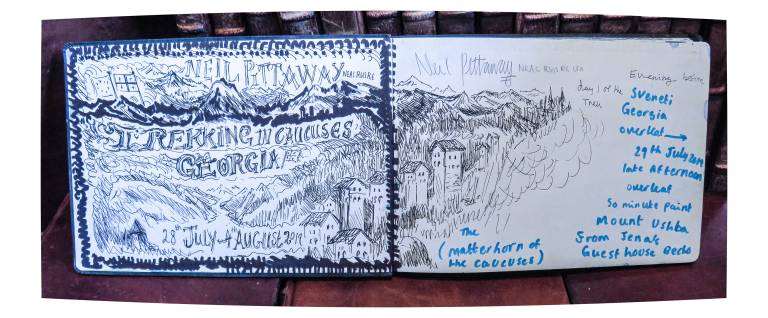 NEIL PITTAWAY NEAC RWS RE
TREKKING IN CAUCUSES
GEORGIA
28th JULY 4th AUGUST 2019
Neil Pittaway NEAC RWS RE
Evening before
day 1 of the
Trek
Svaneti
Georgia
overleaf
29th July 2019
late Afternoon
overleaf
50 minute paint
Mount Ushba
From Jena's
Guest house Becho
The
(matterhorn of
the caucuses)